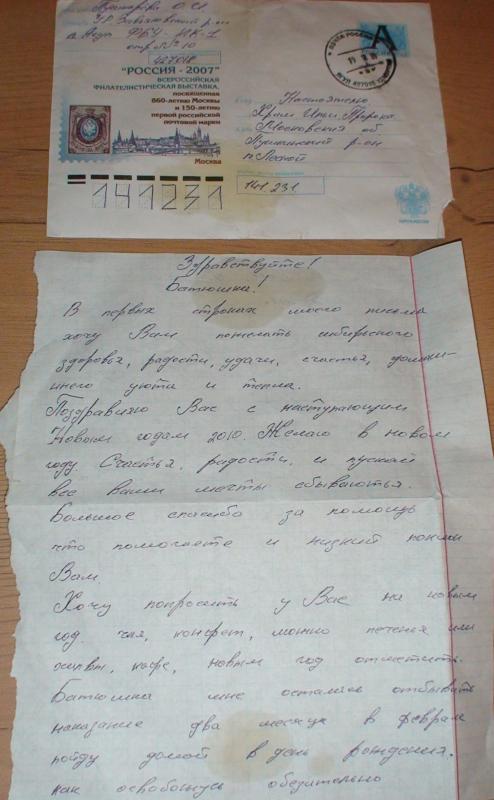 О. С.
УР Завьяловский р-он
п. Ягул ФБУ ИК-1
отр. №10
427018
"РОССИЯ - 2007"
ВСЕРОССИЙСКАЯ
ФИЛАТЕЛИСТИЧЕСКАЯ ВЫСТАВКА,
посвященная
860-летию Москвы
и 150-летию
первой российской
почтовой марки
Москва
А
ПОЧТА РОССИИ
Настоятелю
Храм Ильи Пророка
Московская об
Пушкинский р-он
п. Лесной
141 231
141231
Здравствуйте!
Батюшка!
В первых строках моего письма
хочу Вам пожелать сибирского
здоровья, радости, удачи, счастья, домаш-
него уюта и тепла.
Поздравляю Вас с наступающим
Новым годам 2010. Желаю в новом
году. Счастья, радости, и пускай
все Ваши мечты сбываються.
Большое спасибо за помощь
что помогаете и низкий поклон
Вам.
Хочу попросить у Вас на новый
год. чая, конфет, можно печенья или
кофе, новый год отметить.
Батюшка мне осталось отбывать
наказание два месяца в феврале
пойду домой в день рождения.
как освобожусь обезательно